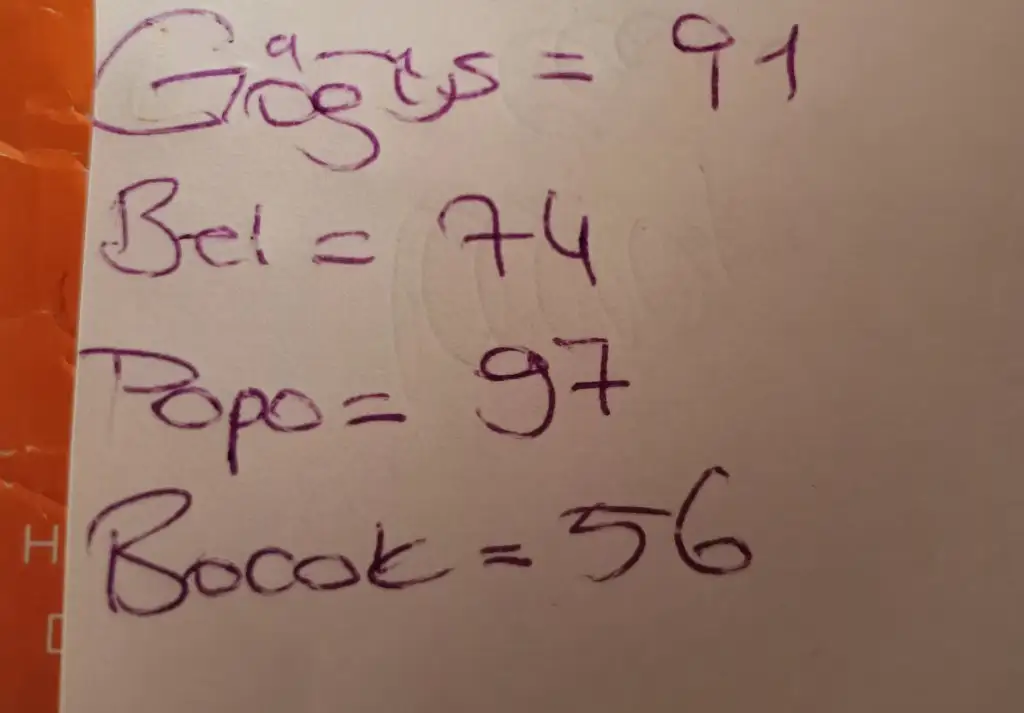 Göğüs = 91
Bel = 74
Popo = 97
Bocok = 56
H